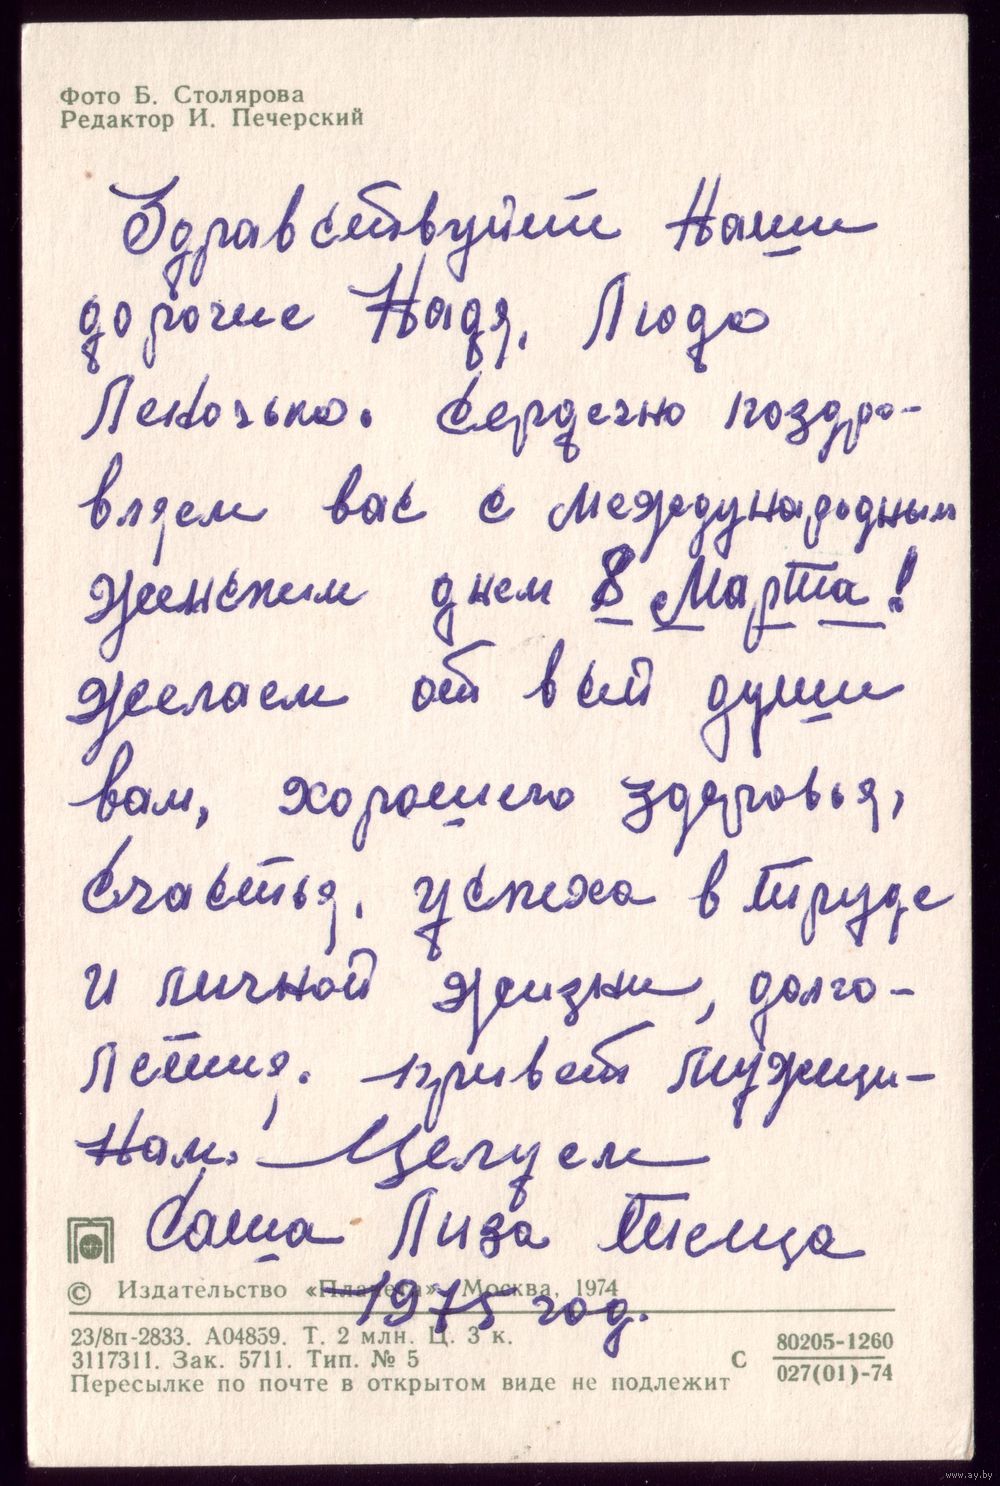 Фото Б. Столярова
Редактор И. Печерский
Здравствуйте Наши
дорогие Надя, Люда
Леночька. Сердечно поздра-
вляем вас с международным
женским днем 8 Марта!
Желаем от всей души
вам, хорошего здоровья,
счастья, успеха в труде
и личной жизни, долго-
летия, привет мужщи-
нам. Целуем
Саша Лиза Тёща
1975 год.
© Издательство «Планета» Москва, 1974
23/8п-2833. А04859. Т. 2 млн. Ц. 3 к.
3117311. Зак. 5711. Тип. № 5
Пересылке по почте в открытом виде не подлежит
С 80205-1260
027(01)-74
www.ay.by